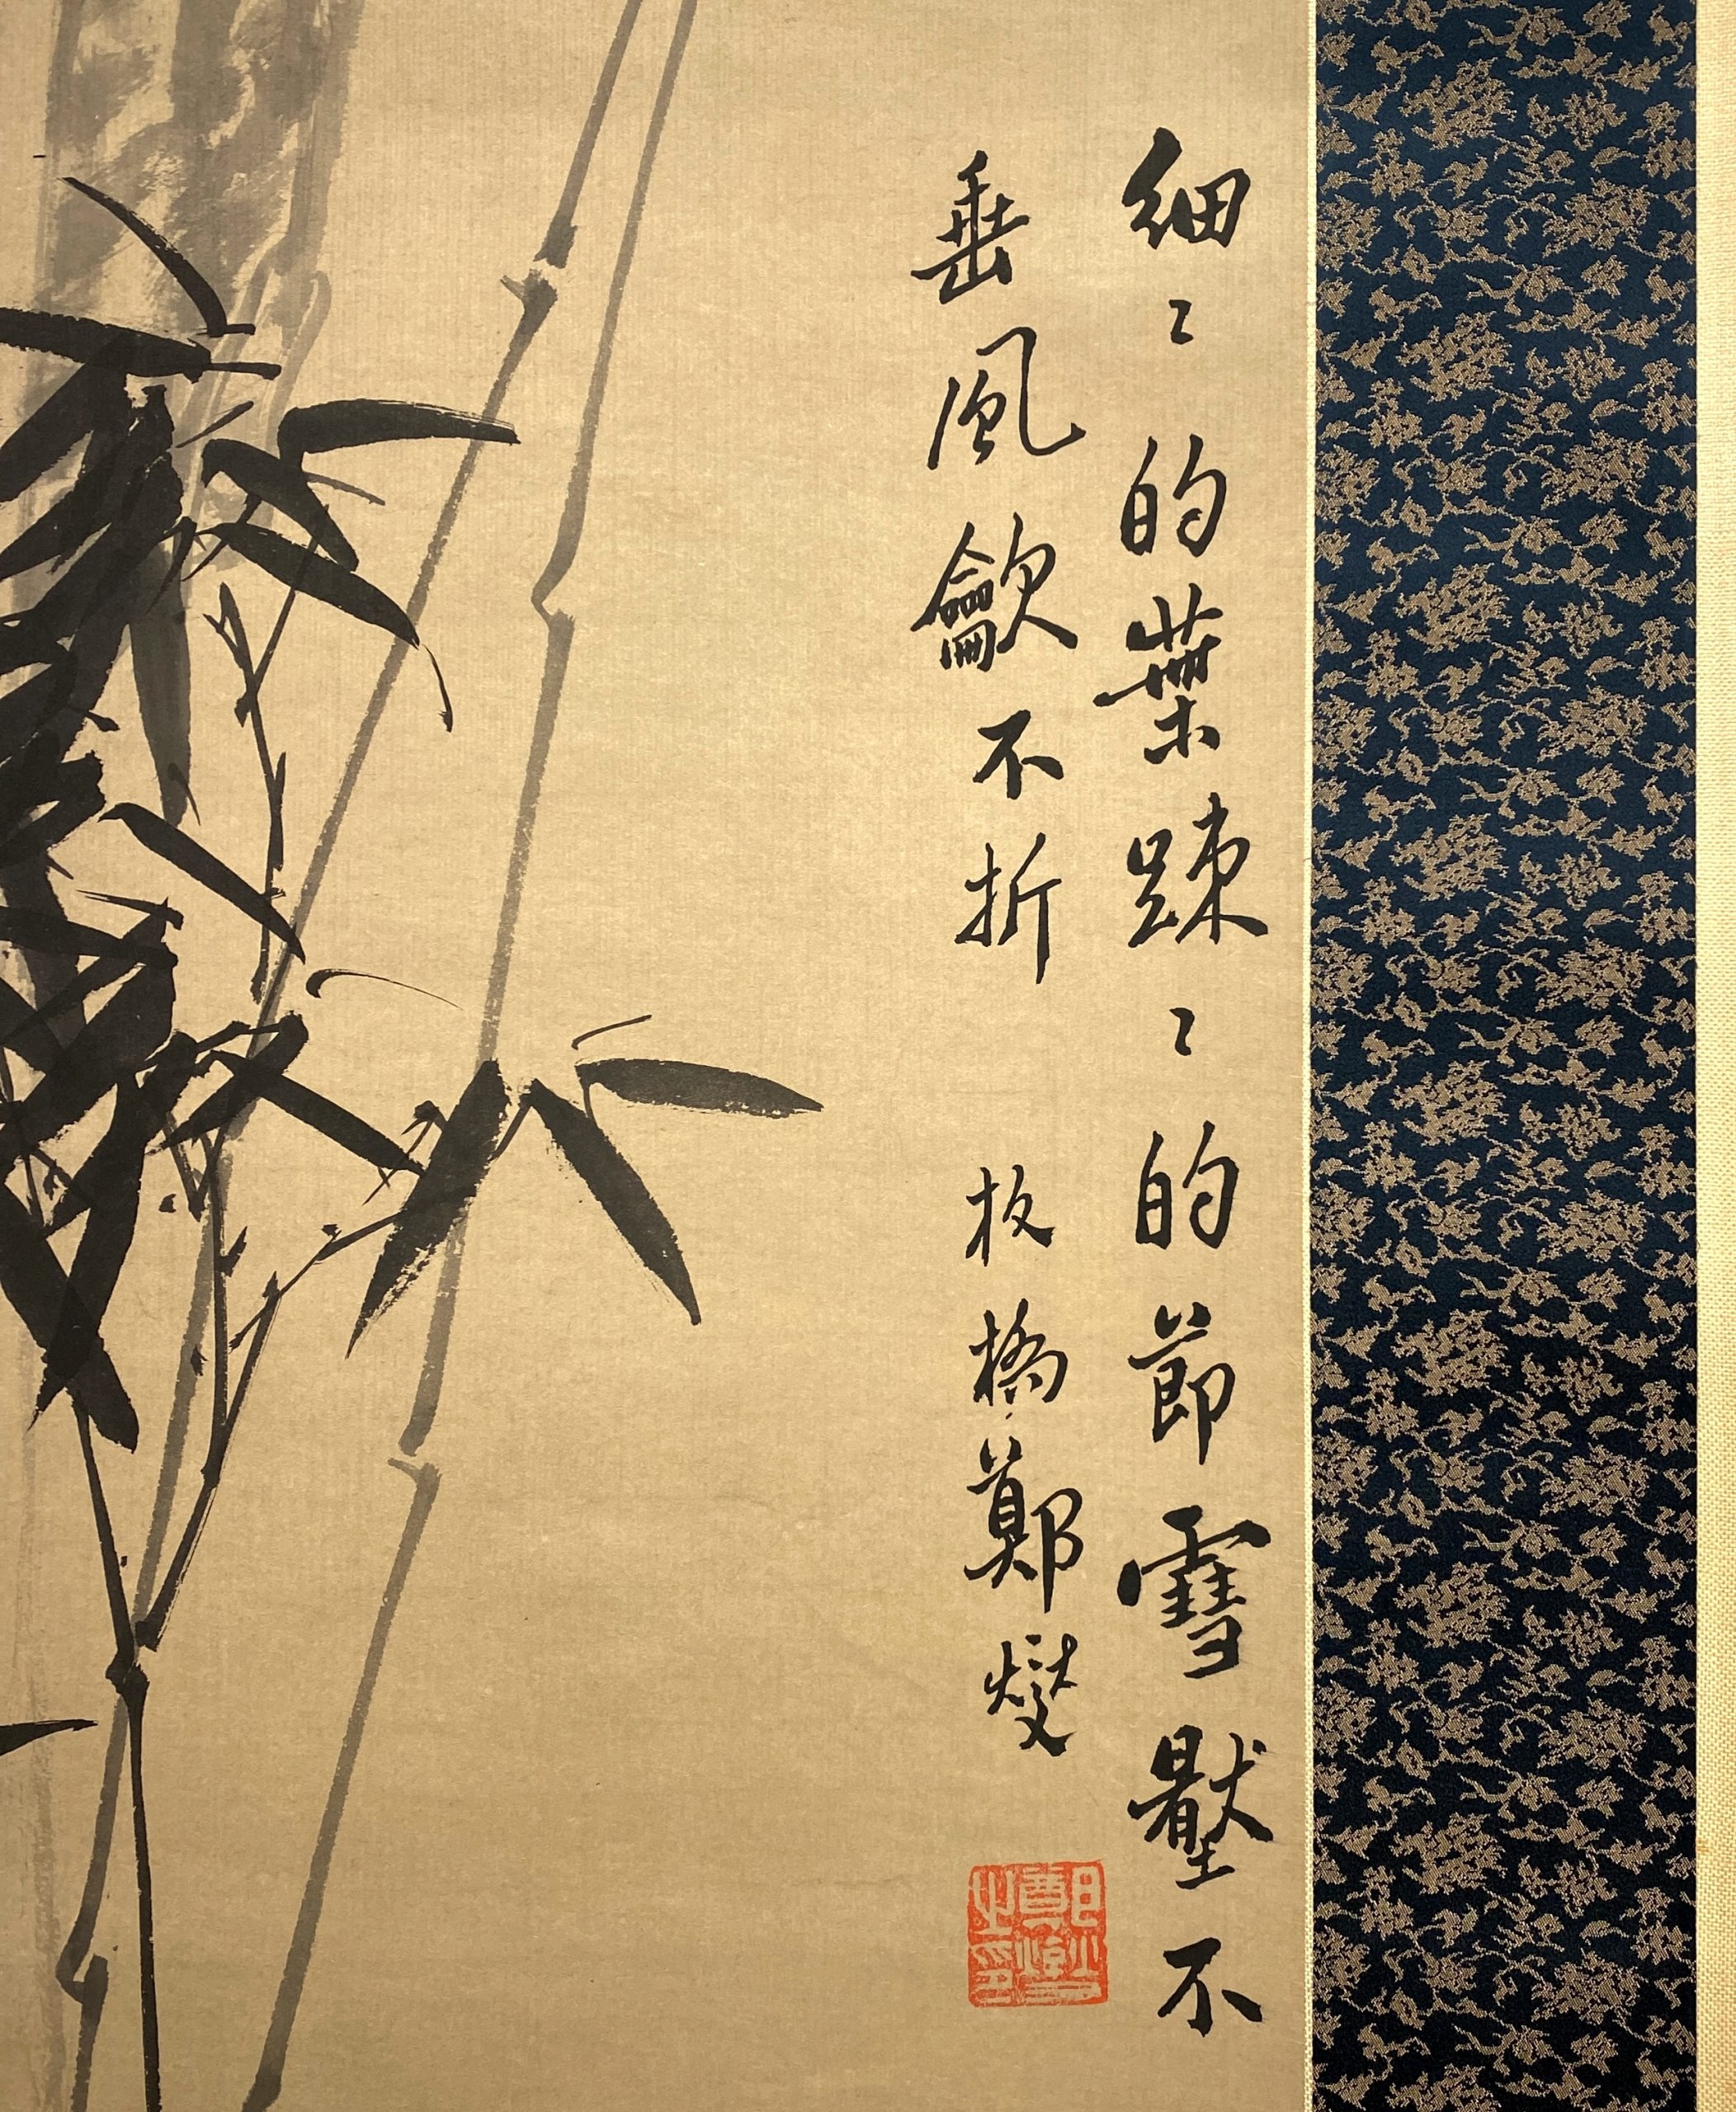 細〻的葉踈〻的節雪壓不
垂風歙不折 板橋鄭燮
鄭燮之印